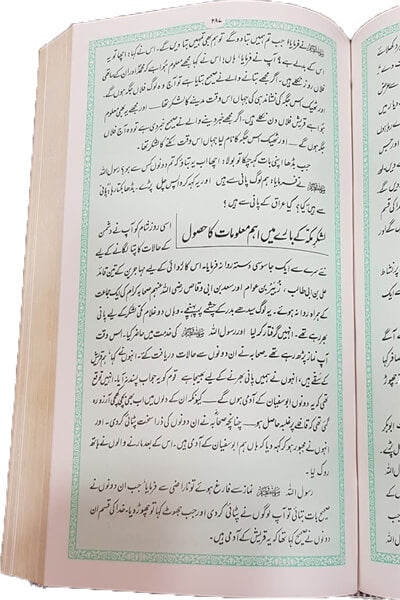 ۲۸۷
ﷺ نے فرمایا: جب تم ہمیں بتا دو گے تو ہم بھی تمہیں بتا دیں گے۔ اس نے کہا: اچھا تو یہ
اس کے بدلے ہے؟ آپ نے فرمایا: ہاں! اس نے کہا مجھے معلوم ہوا ہے کہ محمدؐ اور ان کے ساتھی
فلاں روز نکلے ہیں۔ اگر مجھے بتانے والے نے صحیح بتایا ہے تو آج وہ لوگ فلاں جگہ ہوں گے
— اور ٹھیک اس جگہ کی نشاندہی کی جہاں اس وقت مدینے کا لشکر تھا — اور مجھے یہ بھی معلوم
ہوا ہے قریش فلاں دن نکلے ہیں۔ اگر مجھے خبر دینے والے نے صحیح خبر دی ہے تو وہ آج فلاں
جگہ ہوں گے — اور ٹھیک اس جگہ کا نام لیا جہاں اس وقت مکے کا لشکر تھا۔
جب بڈھا اپنی بات کہہ چکا تو بولا: اچھا اب یہ بتاؤ کہ تم دونوں کس سے ہو؟ رسول اللہ
ﷺ نے فرمایا: ہم لوگ پانی سے ہیں اور یہ کہہ کر واپس چل پڑے۔ بڈھا بکتا رہا: پانی
سے ہیں؟ کیا؟ کیا عراق کے پانی سے ہیں؟
لشکرِ مکہ کے بارے میں اہم معلومات کا حصول
اسی روز شام کو آپ نے دشمن
کے حالات کا پتا لگانے کے لیے
نئے سرے سے ایک جاسوسی دستہ روانہ فرمایا۔ اس کارروائی کے لیے مہاجرین کے تین قائد
علی بن ابی طالب، زبیر بن عوام اور سعد بن ابی وقاص رضی اللہ عنہم صحابہ کرام کی ایک جماعت
کے ہمراہ روانہ ہوئے۔ یہ لوگ سیدھے بدر کے چشمے پر پہنچے۔ وہاں دو غلام مکی لشکر کے لیے پانی
بھر رہے تھے۔ انہیں گرفتار کر لیا اور رسول اللہ ﷺ کی خدمت میں حاضر کیا۔ اس وقت
آپ نماز پڑھ رہے تھے۔ صحابہ نے ان دونوں سے حالات دریافت کئے۔ انہوں نے کہا: ہم قریش
کے سقے ہیں، انہوں نے ہمیں پانی بھرنے کے لیے بھیجا ہے۔ قوم کو یہ جواب پسند نہ آیا۔ انہیں توقع
تھی کہ یہ دونوں ابوسفیان کے آدمی ہوں گے — کیونکہ ان کے دلوں میں اب بھی بچی کھچی آرزو رہ
گئی تھی کہ قافلے پر غلبہ حاصل ہو — چنانچہ صحابہؓ نے ان دونوں کی ذرا سخت پٹائی کر دی۔ اور
انہوں نے مجبور ہو کر کہہ دیا کہ ہاں ہم ابوسفیان کے آدمی ہیں۔ اس کے بعد مارنے والوں نے ہاتھ
روک لیا۔
رسول اللہ ﷺ نماز سے فارغ ہوئے تو ناراضی سے فرمایا: جب ان دونوں نے
صحیح بات بتائی تو آپ لوگوں نے پٹائی کر دی اور جب جھوٹ کہا تو چھوڑ دیا۔ خدا کی قسم ان
دونوں نے صحیح کہا تھا کہ یہ قریش کے آدمی ہیں۔